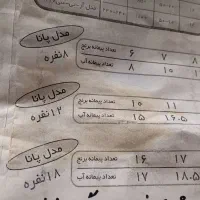 مدل پانا
۸ نفره
تعداد پیمانه برنج ۶ ۷ ۸
تعداد پیمانه آب ۸ ۱۰
مدل پانا
۱۲ نفره
تعداد پیمانه برنج ۱۰ ۱۱
تعداد پیمانه آب ۱۵ ۱۶.۵
مدل پانا
۱۸ نفره
تعداد پیمانه برنج ۱۶ ۱۷
تعداد پیمانه آب ۱۷ ۱۸.۵